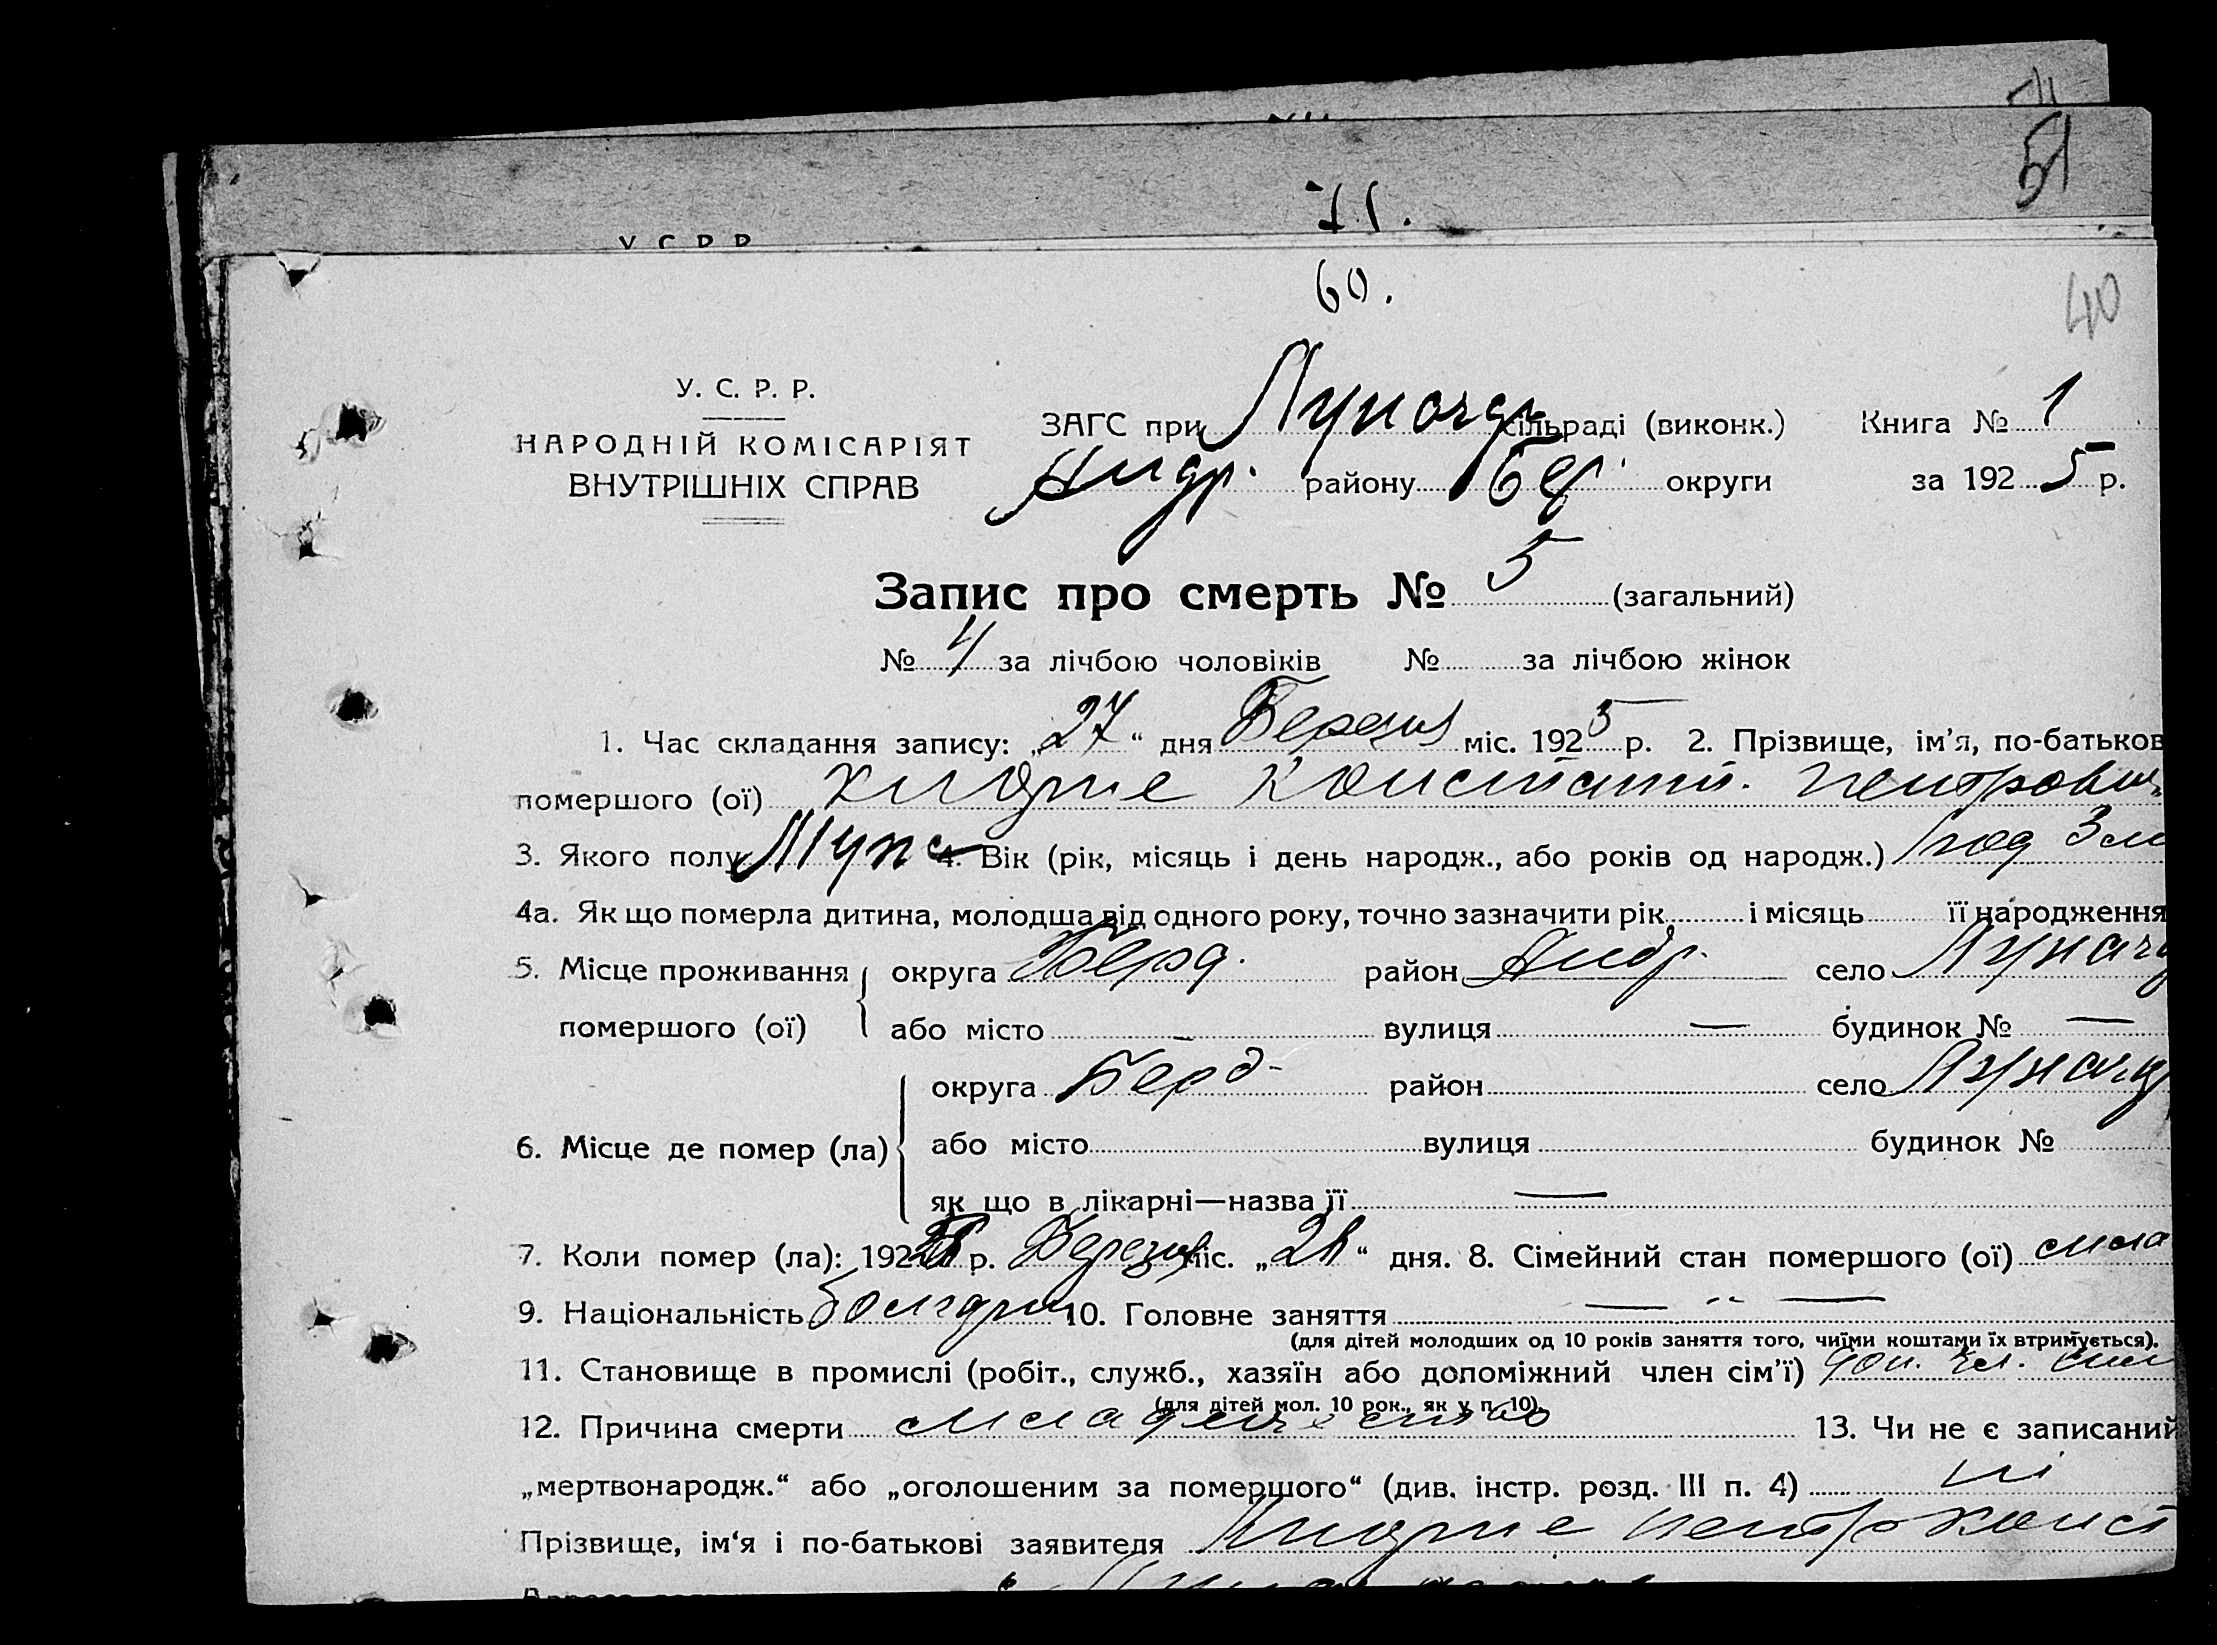 51
71.
У. С. Р. Р.
60.
40
У. С. Р. Р.
НАРОДНІЙ КОМІСАРІЯТ
ВНУТРІШНІХ СПРАВ
ЗАГС при Луначар сільраді (виконк.) Книга № 1
Андр. району Бер. округи за 1925 р.
Запис про смерть № 5 (загальний)
№ 4 за лічбою чоловіків № за лічбою жінок
1. Час складання запису: „27“ дня Березня міс. 1925 р. 2. Прізвище, ім’я, по-батьков
помершого (ої) Констант. Петрович
3. Якого полу Муж 4. Вік (рік, місяць і день народж., або років од народж.) 1 год 3 м
4а. Як що померла дитина, молодша від одного року, точно зазначити рік і місяць її народження
5. Місце проживання помершого (ої) округа Берд. район Андр. село Луначар
або місто — вулиця — будинок № —
6. Місце де помер (ла) округа Берд- район село Луначар
або місто вулиця будинок №
як що в лікарні—назва її —
7. Коли помер (ла): 192 р. Березня міс. „26“ дня. 8. Сімейний стан помершого (ої) мла
9. Національність болгарин 10. Головне заняття — „ —
(для дітей молодших од 10 років заняття того, чиїми коштами їх втримується).
11. Становище в промислі (робіт., служб., хазяїн або допоміжний член сім’ї) доп. чл. сим
(для дітей мол. 10 рок., як у п. 10).
12. Причина смерти младенчество 13. Чи не є записаний
„мертвонародж.“ або „оголошеним за помершого“ (див. інстр. розд. III п. 4) ні
Прізвище, ім‘я і по-батькові заявителя Петро Конст